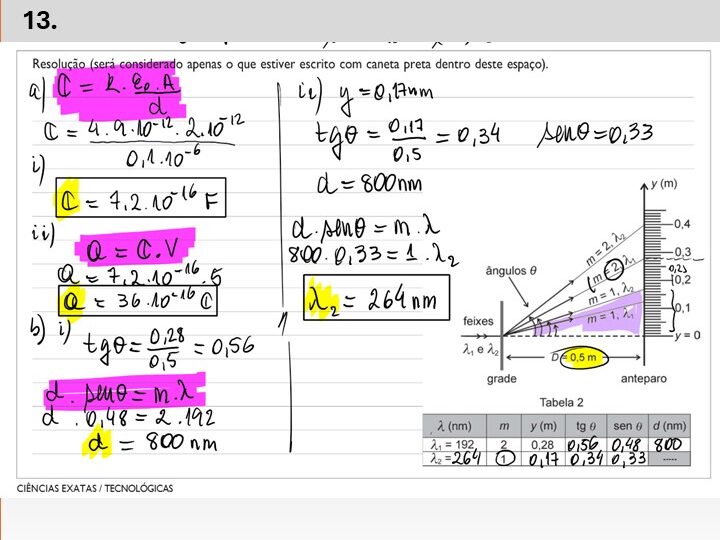 13.
Resolução (será considerado apenas o que estiver escrito com caneta preta dentro deste espaço).
a) C = k . ε₀ . A / d
C = 4 . 9 . 10⁻¹² . 2 . 10⁻¹² / 0,1 . 10⁻⁶
i)
C = 7,2 . 10⁻¹⁶ F
ii)
Q = C . V
Q = 7,2 . 10⁻¹⁶ . 5
Q = 36 . 10⁻¹⁶ C
b) i)
tgθ = 0,28 / 0,5 = 0,56
d . senθ = m . λ
d . 0,48 = 2 . 192
d = 800 nm
ii) y = 0,17nm
tgθ = 0,17 / 0,5 = 0,34 senθ = 0,33
d = 800 nm
d . senθ = m . λ
800 . 0,33 = 1 . λ₂
λ₂ = 264 nm
y (m)
0,4
0,3
0,23
0,2
0,1
y = 0
m = 2, λ₂
m = 2, λ₁
m = 1, λ₂
m = 1, λ₁
ângulos θ
feixes
λ₁ e λ₂
D = 0,5 m
grade
anteparo
Tabela 2
λ (nm) m y (m) tg θ sen θ d (nm)
λ₁ = 192 2 0,28 0,56 0,48 800
λ₂ = 264 1 0,17 0,34 0,33 -----
CIÊNCIAS EXATAS / TECNOLÓGICAS